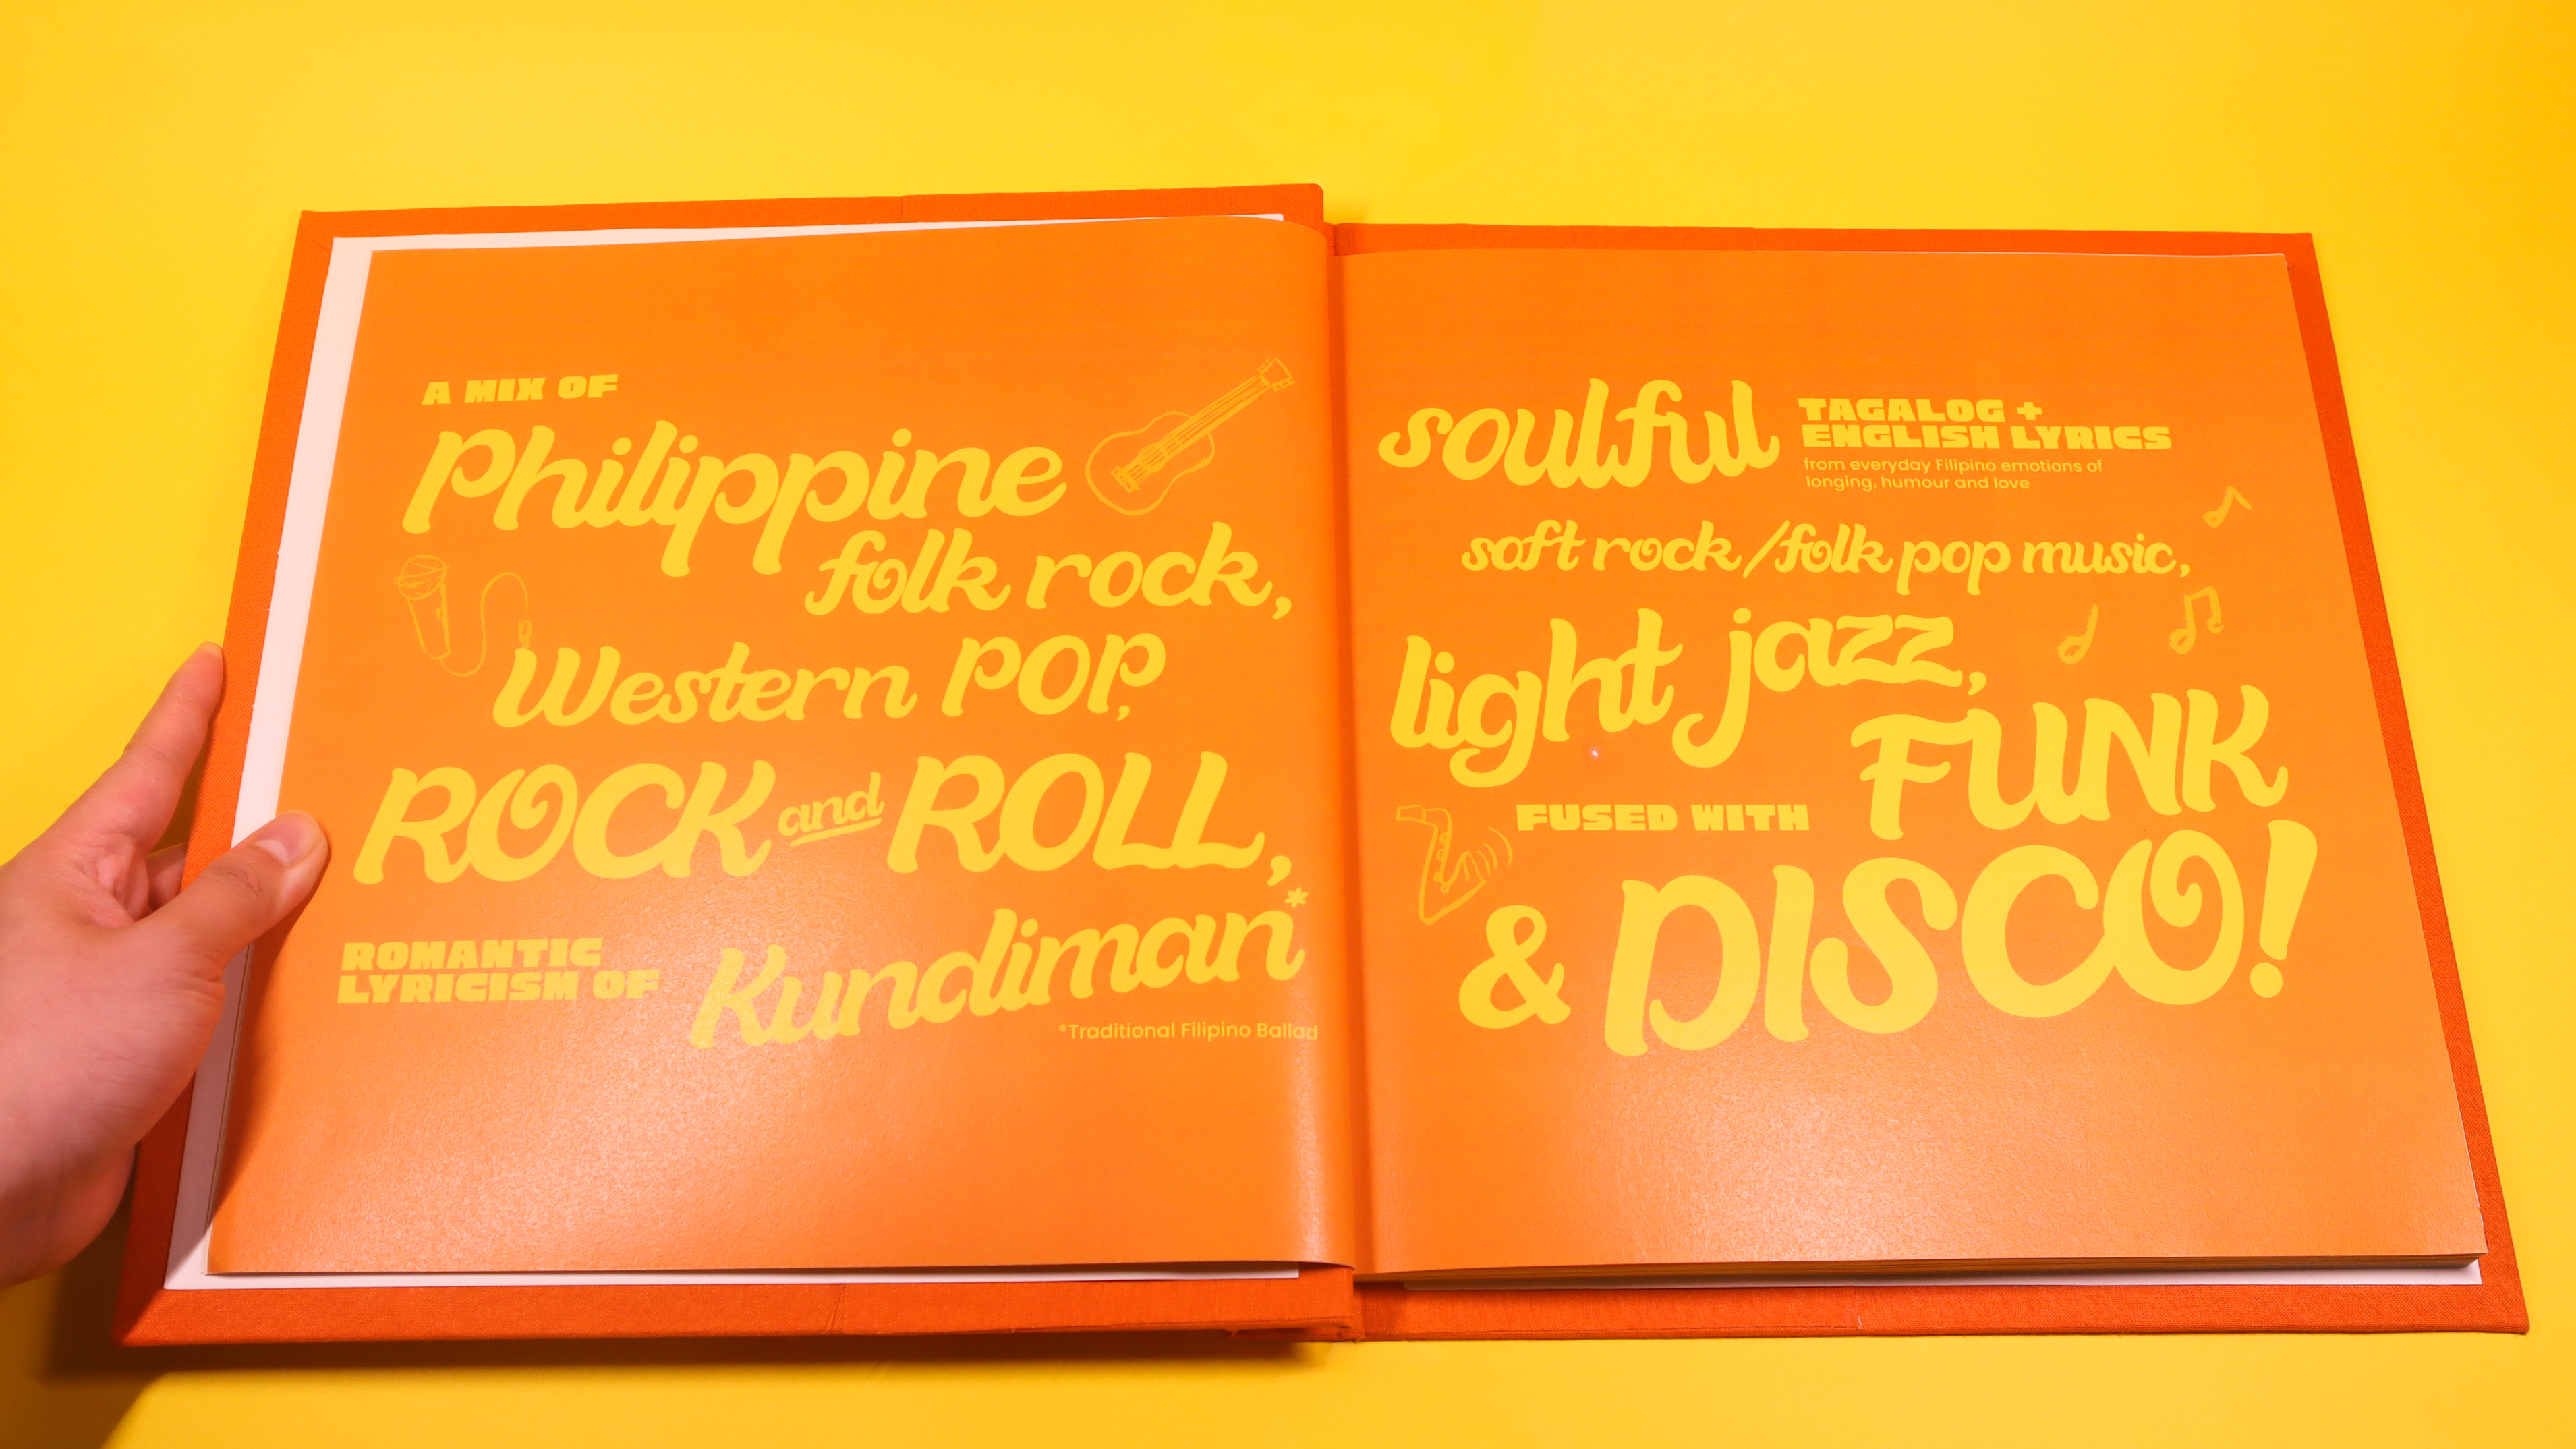 A MIX OF
Philippine
folk rock,
Western POP,
ROCK and ROLL,
ROMANTIC
LYRICISM OF
Kundiman*
*Traditional Filipino Ballad
soulful
TAGALOG +
ENGLISH LYRICS
from everyday Filipino emotions of
longing, humour and love
soft rock/folk pop music,
light jazz,
FUSED WITH
FUNK
& DISCO!